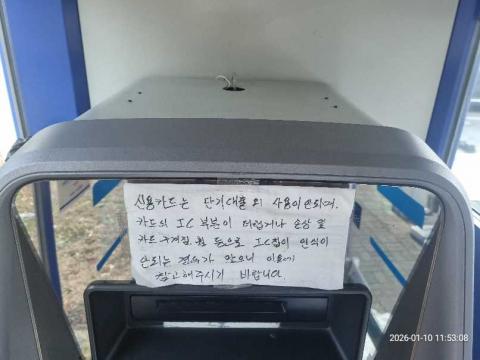 신용카드는 단기대출외 사용이 안되며,
카드의 IC 부분이 더럽거나 손상 및
카드 구겨짐, 휨 등으로 IC칩이 인식이
안되는 경우가 많으니 이용에
참고해주시기 바랍니다.
2026-01-10 11:53:08